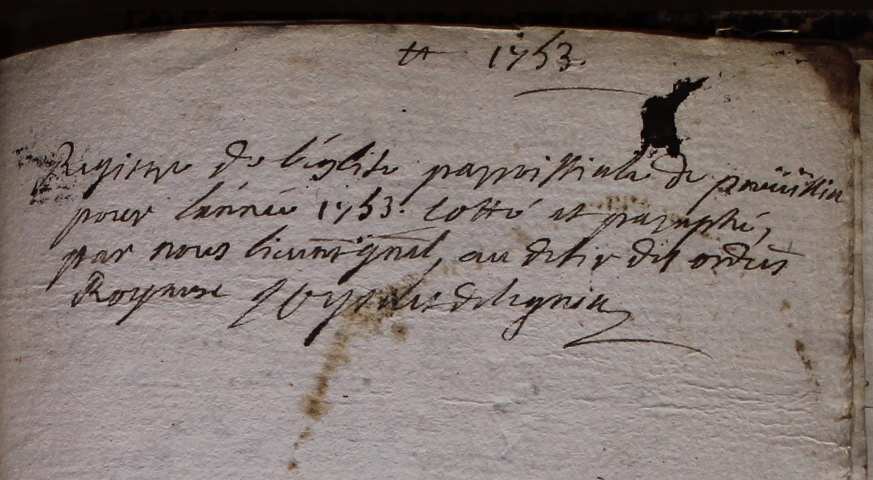 1753.
Registre de l'église parroissiale de
pour l'année 1753. Cotté et paraphé,
par nous soussigné, au desir des ordres
Royaux